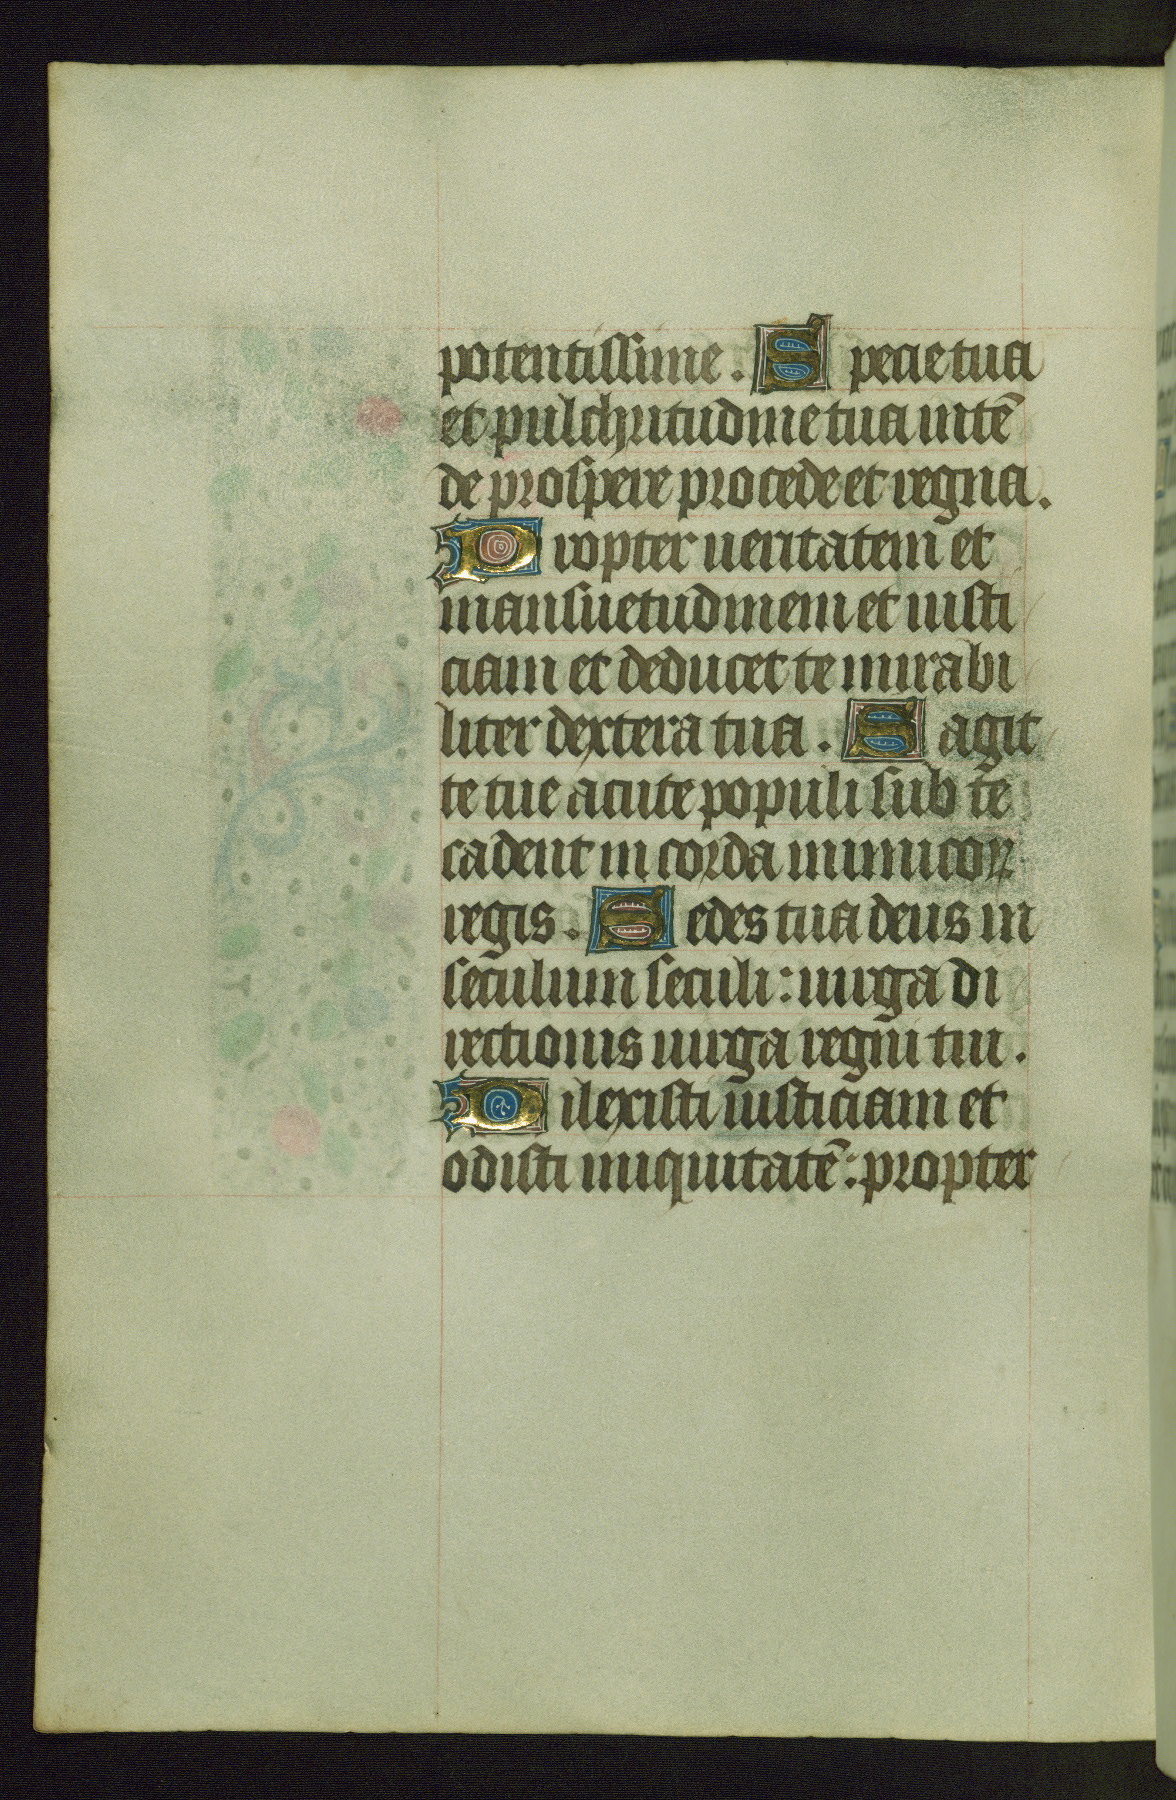 potentissime. Specie tua
et pulchritudine tua inten̄
de prospere procede et regna.
Propter ueritatem et
mansuetudinem et iusti
ciam et deducet te mirabi
liter dextera tua. Sagit
te tue acute populi sub te
cadent in corda inimicoꝝ
regis. Sedes tua deus in
seculum seculi: uirga di
rectionis uirga regni tui.
Dilexisti iusticiam et
odisti iniquitatē: propter